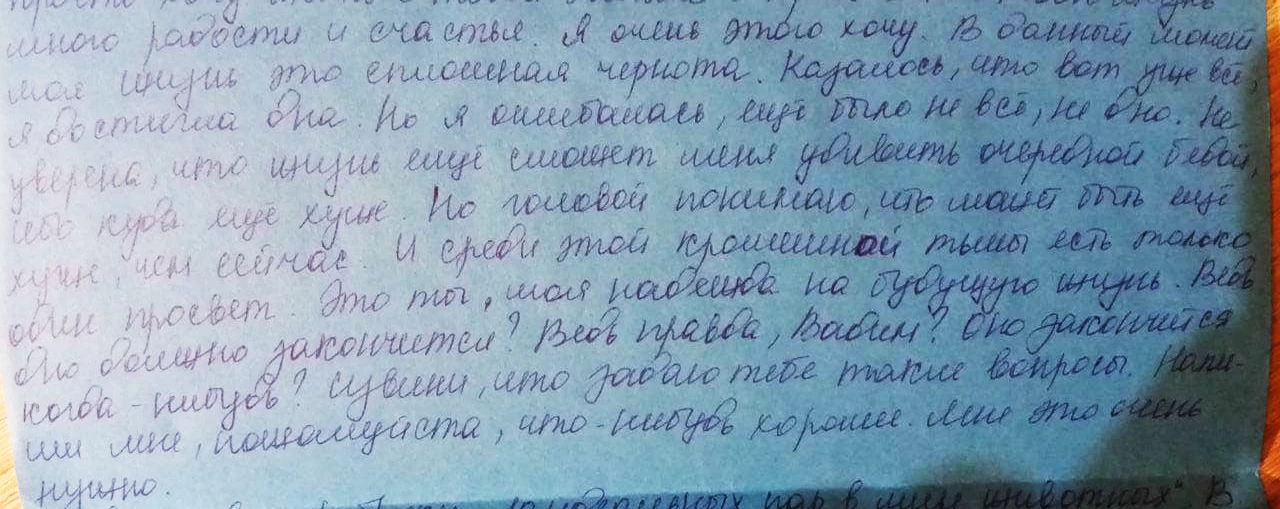 много радости и счастье. Я очень этого хочу. В данный момент
моя жизнь это сплошная чернота. Казалось, что вот уже всё,
я достигла дна. Но я ошибалась, ещё было не всё, не дно. Не
уверена, что жизнь ещё сможет меня удивить очередной бедой,
ибо куда ещё хуже. Но головой понимаю, что может быть ещё
хуже, чем сейчас. И среди этой крошешной тьмы есть только
один просвет. Это ты, моя надежда на будущую жизнь. Ведь
дно должно закончится? Ведь правда, Вадим? Оно закончится
когда-нибудь? Извини, что задаю тебе такие вопросы. Напи-
ши мне, пожалуйста, что-нибудь хорошее. Мне это очень
нужно.
пар в мире животных". В